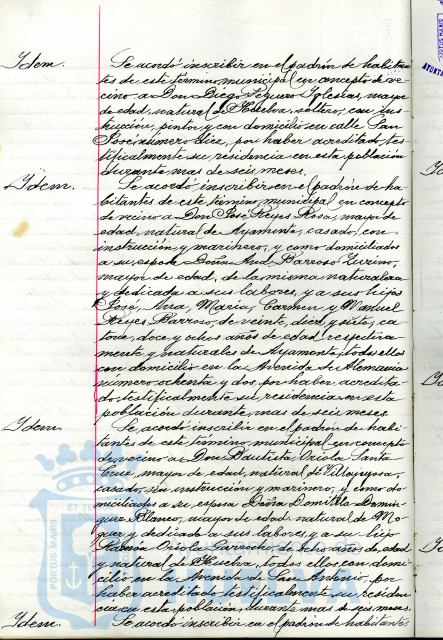 Ydem.
Se acordó inscribir en el padrón de habitan
tes de este término municipal en concepto de ve
cino a Don Diego Seguero Iglesias, mayor
de edad, natural de Huelva, soltero, con ins
trucción, pintor y con domicilio en calle San
José número diez, por haber acreditado tes
tificalmente su residencia en esta población
durante mas de seis meses.
Ydem.
Se acordó inscribir en el padrón de ha
bitantes de este término municipal en concepto
de vecino a Don José Reyes Rosa, mayor de
edad, natural de Ayamonte, casado, con
instrucción y marinero, y como domiciliados
a su esposa Doña Ana Barroso
mayor de edad, de la misma naturaleza
y dedicada a sus labores, y a sus hijos
José, Ana, María, Carmen y Manuel
Reyes Barroso, de veinte, diez y siete, ca
torce, doce y ocho años de edad respectiva
mente y naturales de Ayamonte, todos ellos
con domicilio en la Avenida de Alemania
número ochenta y dos, por haber acredita
do testificalmente su residencia en esta
población durante mas de seis meses.
Ydem.
Se acordó inscribir en el padrón de habi
tantes de este término municipal en concepto
de vecino a Don Bautista Oriola Santa
Cruz, mayor de edad, natural de Villajoyosa,
casado, sin instrucción y marinero, y como do
miciliados a su esposa Doña Domitila Domin
guez Blanco, mayor de edad, natural de Mo
guer y dedicada a sus labores, y a su hijo
Ramón Oriola de ocho años de edad
y natural de Huelva, todos ellos con domi
cilio en la Avenida de San Antonio, por
haber acreditado testificalmente su residen
cia en esta población durante mas de seis meses.
Ydem.
Se acordó inscribir en el padrón de habitantes
PORTUS MARIS
ET TE